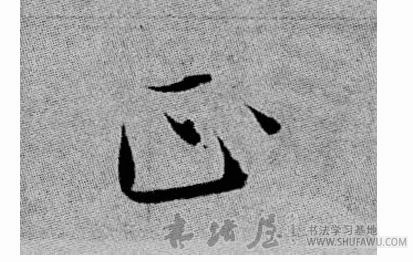 必
书法学习基地
WWW.SHUFAWU.COM